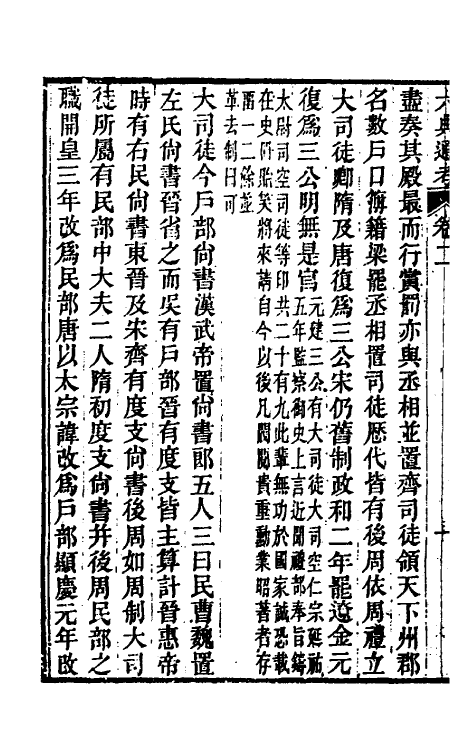 六典通考　卷二
盡奏其殿最而行賞罰亦與丞相並置齊司徒領天下州郡
名數戶口簿籍梁罷丞相置司徒歷代皆有後周依周禮立
大司徒卿隋及唐復爲三公宋仍舊制政和二年罷遼金元
復爲三公明無是官元建三公有大司徒大司空仁宗延祐
五年監察御史上言近聞禮部奉旨鑄
太尉司空司徒等印共二十有九此輩無功於國家誠恐載
在史冊貽笑將來請自今以後凡閥閱貴重勳業昭著者存
留一二餘並
革去制曰可
大司徒今戶部尙書漢武帝置尙書郎五人三曰民曹魏置
左民尙書晉省之而吳有戶部晉有度支皆主算計晉惠帝
時有右民尙書東晉及宋齊有度支尙書後周如周制大司
徒所屬有民部中大夫二人隋初度支尙書并後周民部之
職開皇三年改爲民部唐以太宗諱改爲戶部顯慶元年改